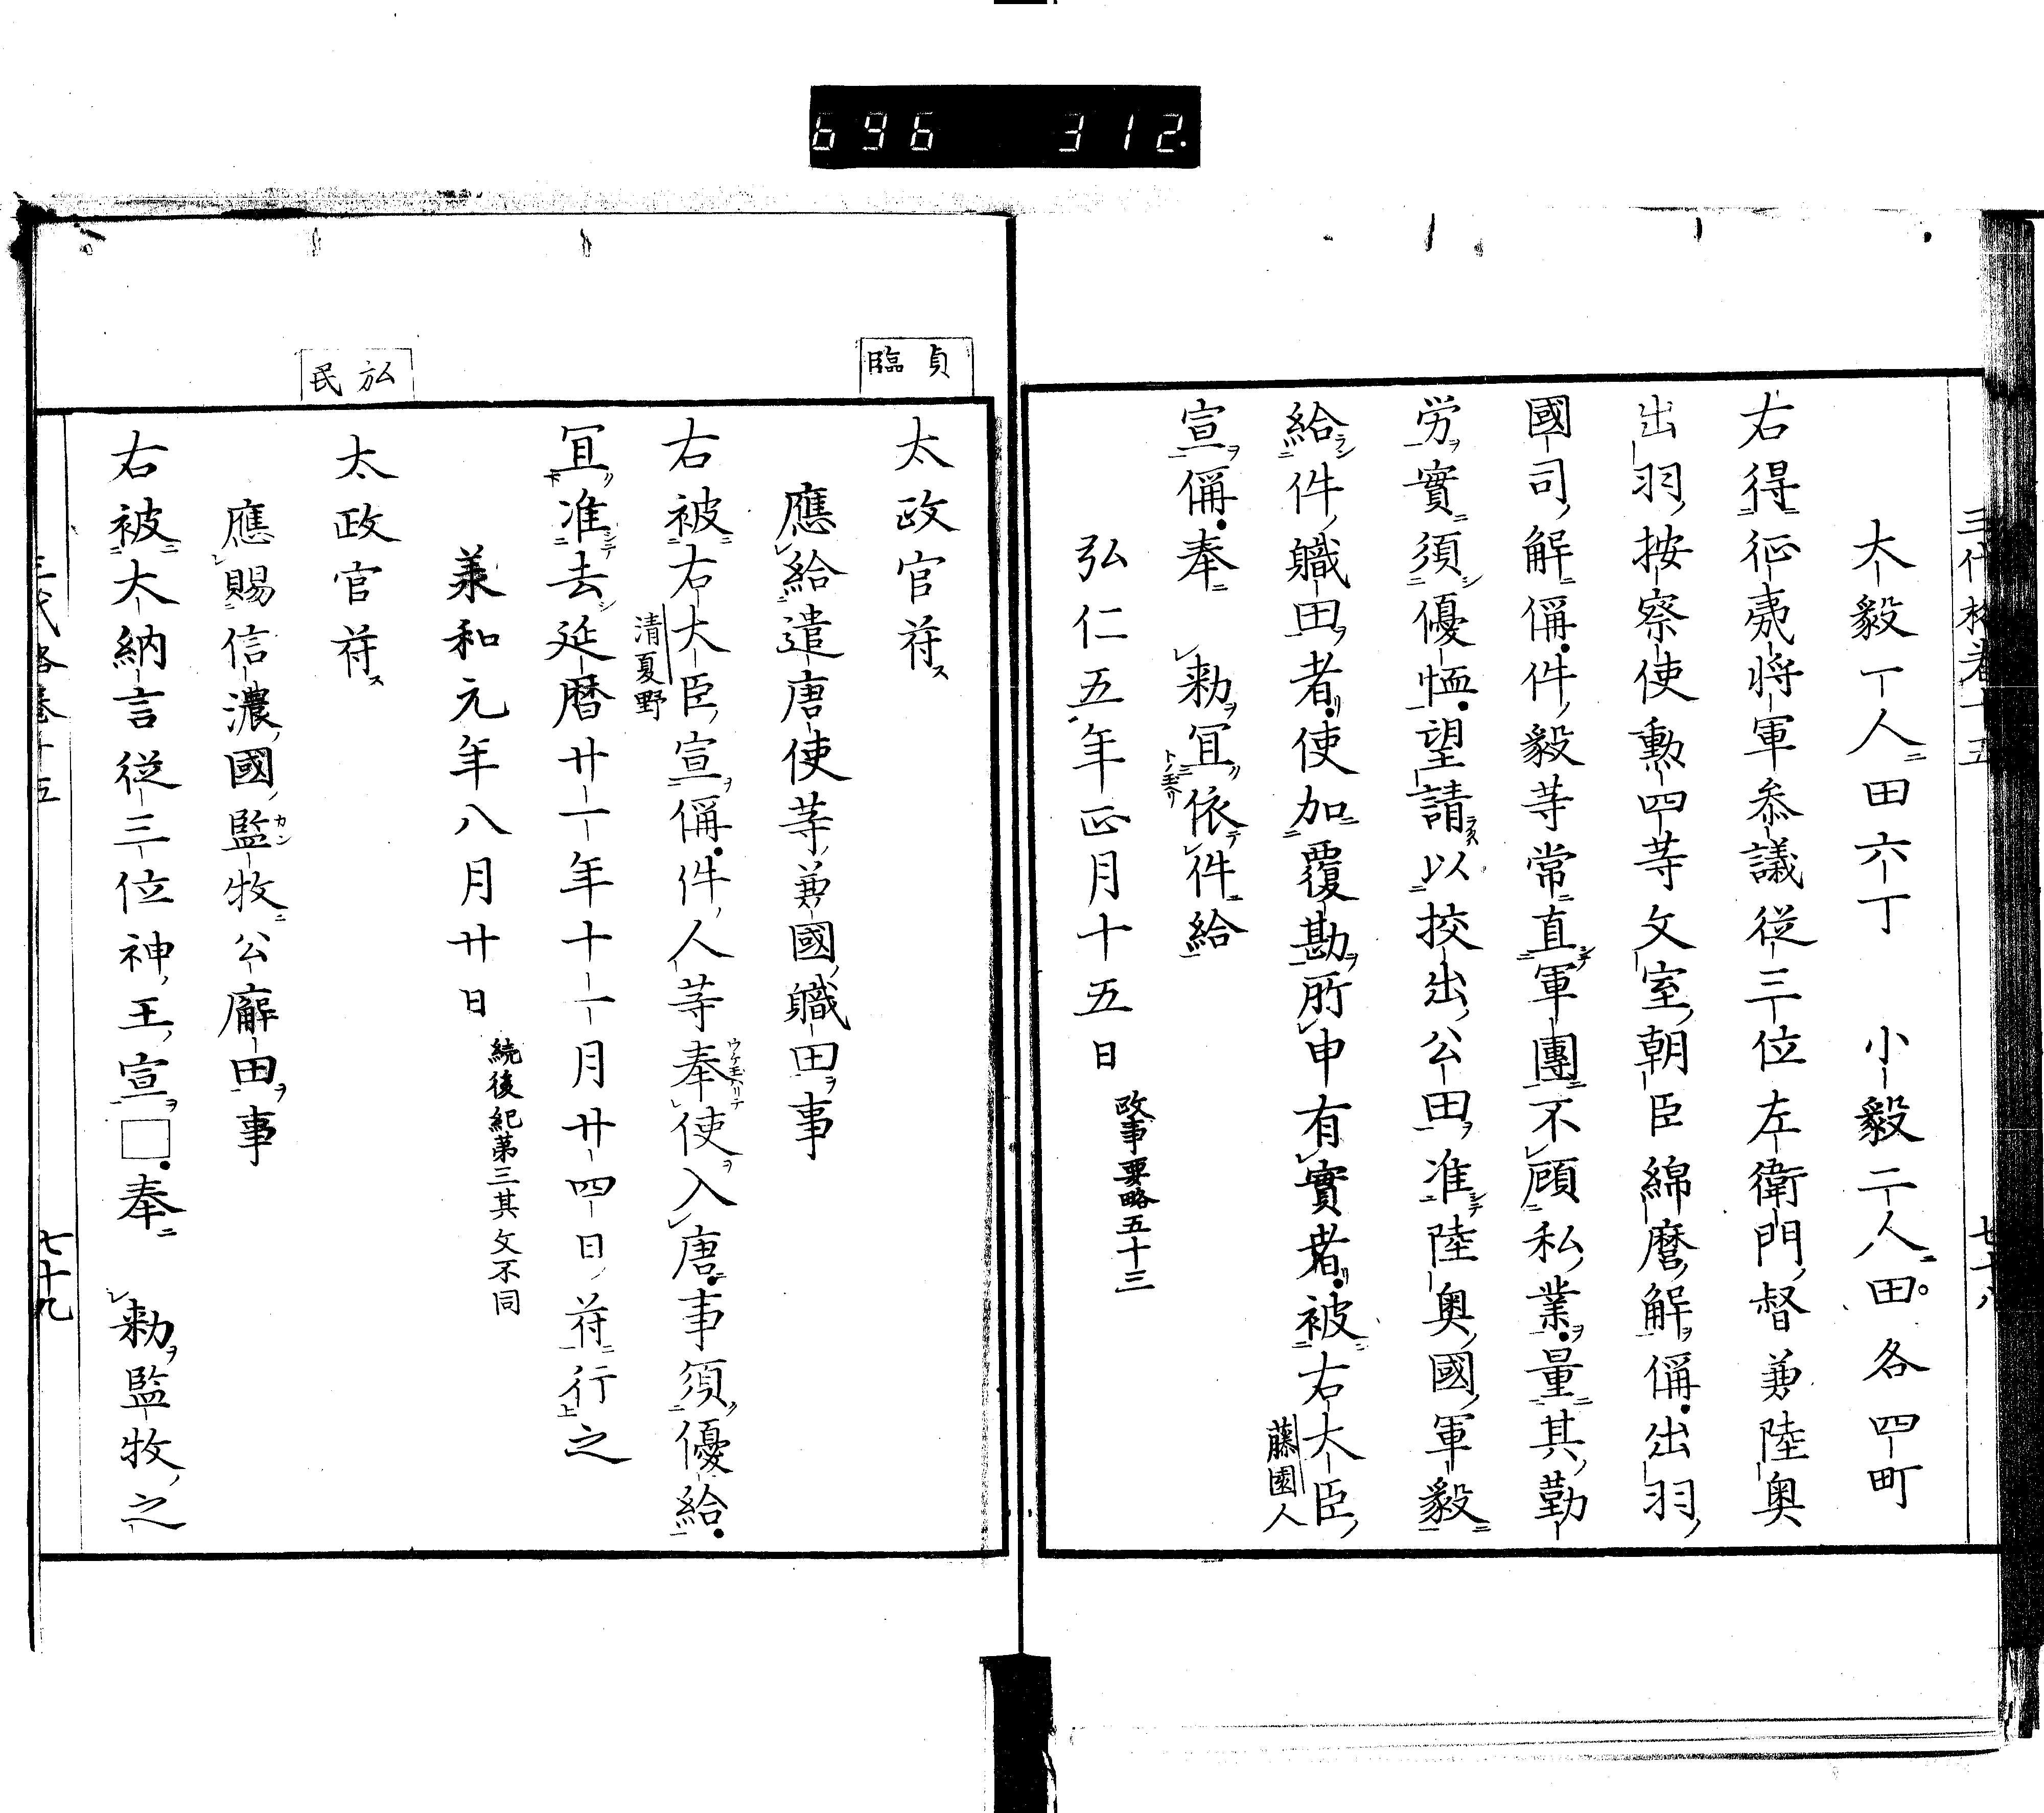 696 312.
大毅一人田六丁 小毅二人田各四町
右得征夷将軍参議従三位左衛門督兼陸奥
出羽按察使勲四等文室朝臣綿麿解偁出羽
國司解偁件毅等常直軍團不顧私業量其勤
労實須優恤望請以挍出公田准陸奥國軍毅
給件職田者使加覆勘所申有實者被右大臣
藤園人
宣偁奉 勅冝依件給
弘仁五年正月十五日 政事要略五十三
貞臨
太政官苻
應給遣唐使等兼國職田事
右被右大臣宣偁件人等奉使入唐事須優給
清夏野
冝准去延暦廿一年十一月廿四日苻行之
承和元年八月廿日 続後紀第三其文不同
弘民
太政官苻
應賜信濃國監牧公廨田事
右被大納言従三位神王宣□奉 勅監牧之
七十九